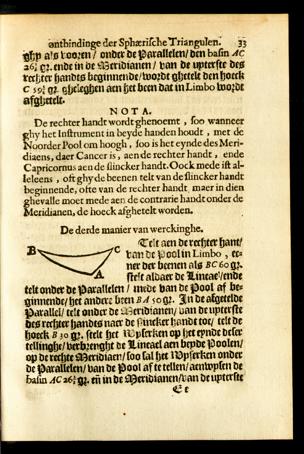 ontbindinge der Sphærische Triangulen. 33
ghy als vooren / onder de Parallelen / den basin AC
26¾ gr. ende in de Meridianen / van de upterste des
rechter handts beginnende / wordt ghetelt den hoeck
C 59¾ gr. gheleghen aen het been dat in Limbo wordt
afghetelt.
NOTA.
De rechter handt wordt ghenoemt, soo wanneer
ghy het Instrument in beyde handen houdt, met de
Noorder Pool om hoogh, soo is het eynde des Meri-
diaens, daer Cancer is, aen de rechter handt, ende
Capricornus aen de slincker handt. Oock mede ist al-
leleens, oft ghy de beenen telt van de slincker handt
beginnende, ofte van de rechter handt, maer in dien
ghevalle moet mede aen de contrarie handt onder de
Meridianen, de hoeck afghetelt worden.
De derde manier van werckinghe.
B C A
Telt aen de rechter hant/
van de Pool in Limbo, ee-
ner der beenen als BC 60 gr.
stelt aldaer de Lineael / ende
telt onder de Parallelen / mede van de Pool af be-
ginnende / het andere been BA 50 gr. In de afgetelde
Parallel / telt onder de Meridianen / van de upterste
des rechter handts naer de slincker handt toe / telt de
hoeck B 30 gr. stelt het Wpserken op het eynde deser
tellinghe / verbrenght de Lineael aen beyde Poolen /
op de rechte Meridiaen / soo sal het Wpserken onder
de Parallelen / van de Pool af te tellen / aenwpsen de
basin AC 26¾ gr. en in de Meridianen / van de upterste
Et